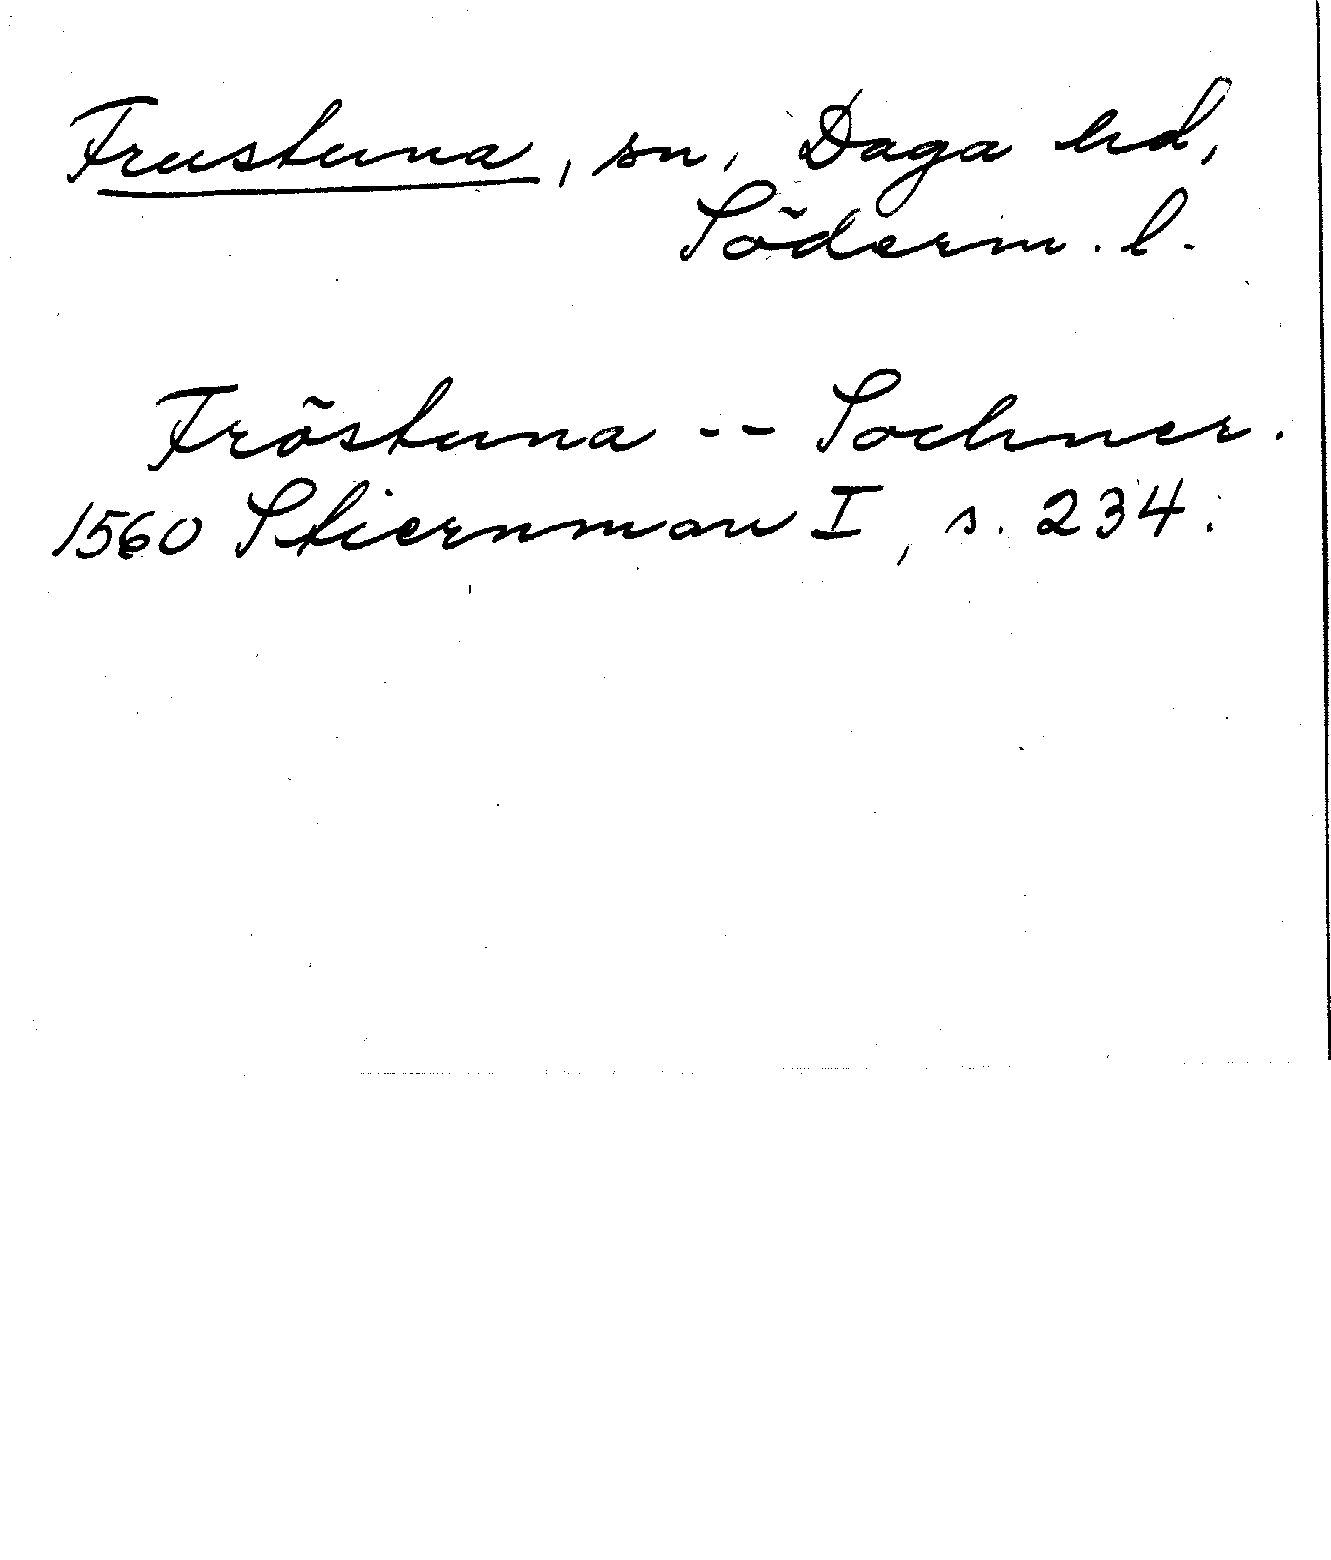 Frustuna, sn, Daga hd,
Söderm. l.
Fröstuna -- Sochner.
1560 Stiernman I, s. 234.